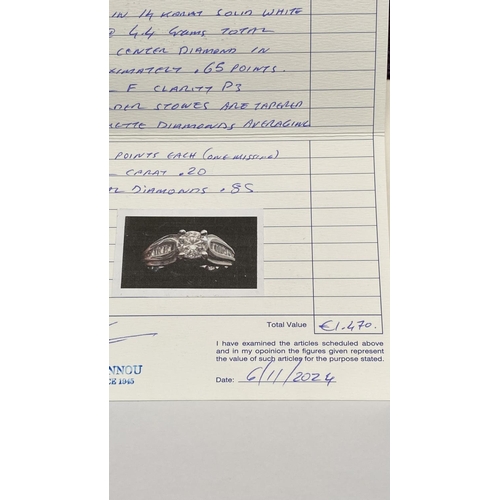 IN 14 KARAT SOLID WHITE
4.4 GRAMS TOTAL
CENTER DIAMOND IN
XIMATELY .65 POINTS.
F CLARITY P3
DER STONES ARE TAPERED
ETTE DIAMONDS AVERAGING
POINTS EACH (ONE MISSING)
CARAT .20
DIAMONDS .85
Total Value €1.470.
I have examined the articles scheduled above
and in my opoinion the figures given represent
the value of such articles for the purpose stated.
NNOU
CE 1945
Date: 6/11/2024